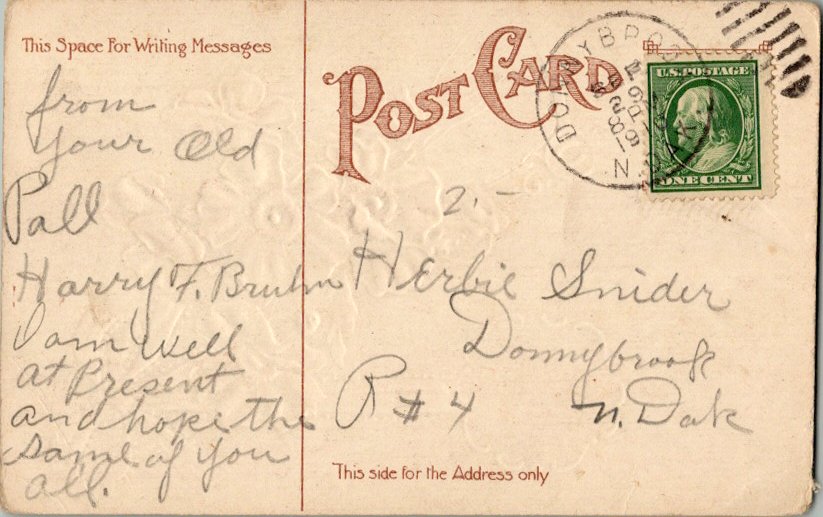 This Space For Writing Messages
POST CARD
DONNYBROOK
N. DAK.
U.S. POSTAGE
ONE CENT
from
your Old
Pall
Harry F. Bruhn
I am well
at Present
and hope the
same of you
all.
2.-
Herbie Snider
Donnybrook
R # 4 N. Dak
This side for the Address only